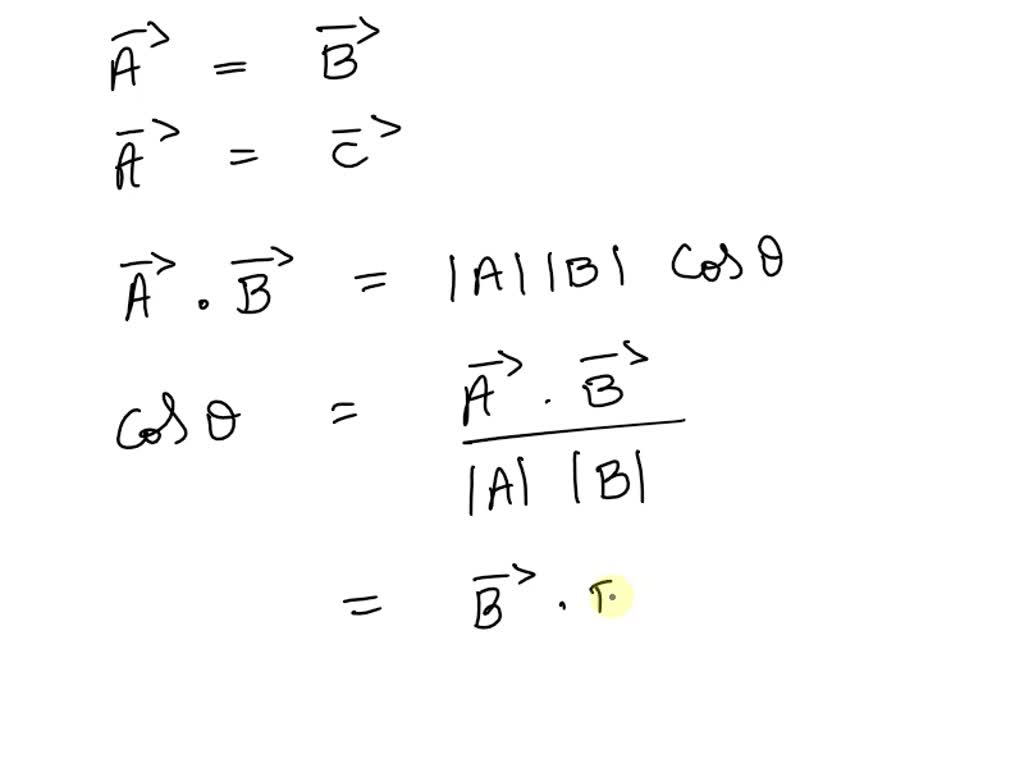 A⃗ = B⃗
A⃗ = C⃗
A⃗ . B⃗ = |A| |B| cos θ
cos θ = A⃗ . B⃗
|A| |B|
= B⃗ .